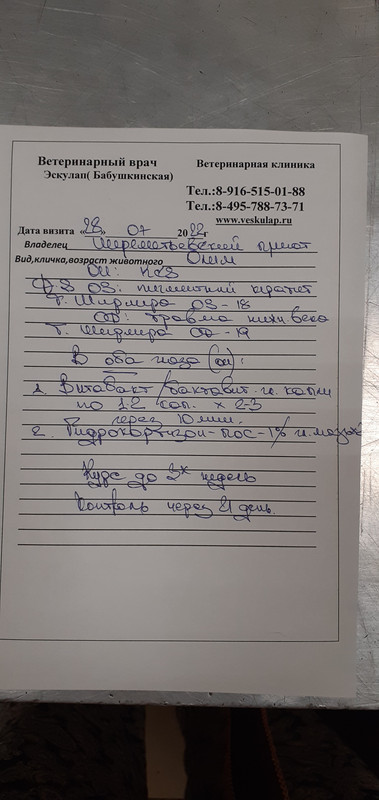 Ветеринарный врач
Эскулап( Бабушкинская)
Ветеринарная клиника
Тел.:8-916-515-01-88
Тел.:8-495-788-73-71
www.veskulap.ru
Дата визита «28» 07 2022г
Владелец Шереметьевский приют
Вид,кличка,возраст животного
OS: пигментный кератит
Т. Ширмера OS - 18
OD: травма нижн. века
Т. Ширмера OD - 19
В оба глаза (OU):
1. Витабакт / Бактавит гл. капли
по 1-2 кап. х 2-3
через 10 мин.
2. Гидрокортизон-Пос - 1% гл. мазь
Курс до 3х недель
Контроль через 21 день.